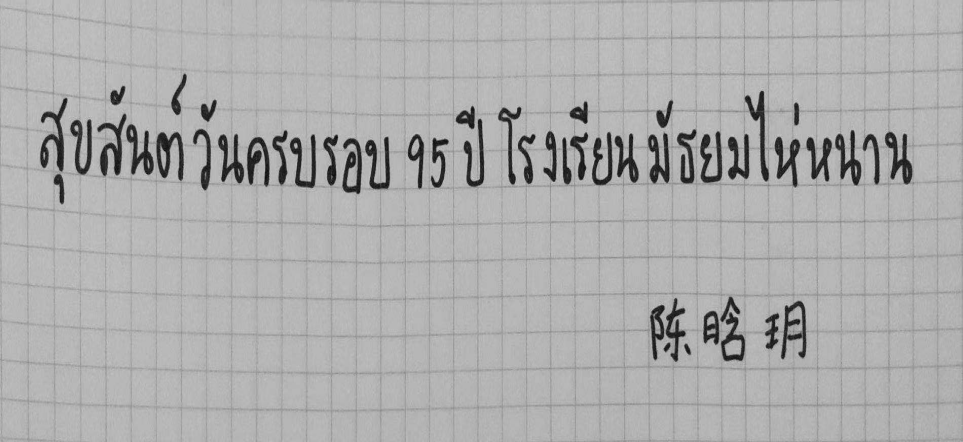 สุขสันต์วันครบรอบ 95 ปี โรงเรียนมัธยมไห่หนาน
陈晗玥